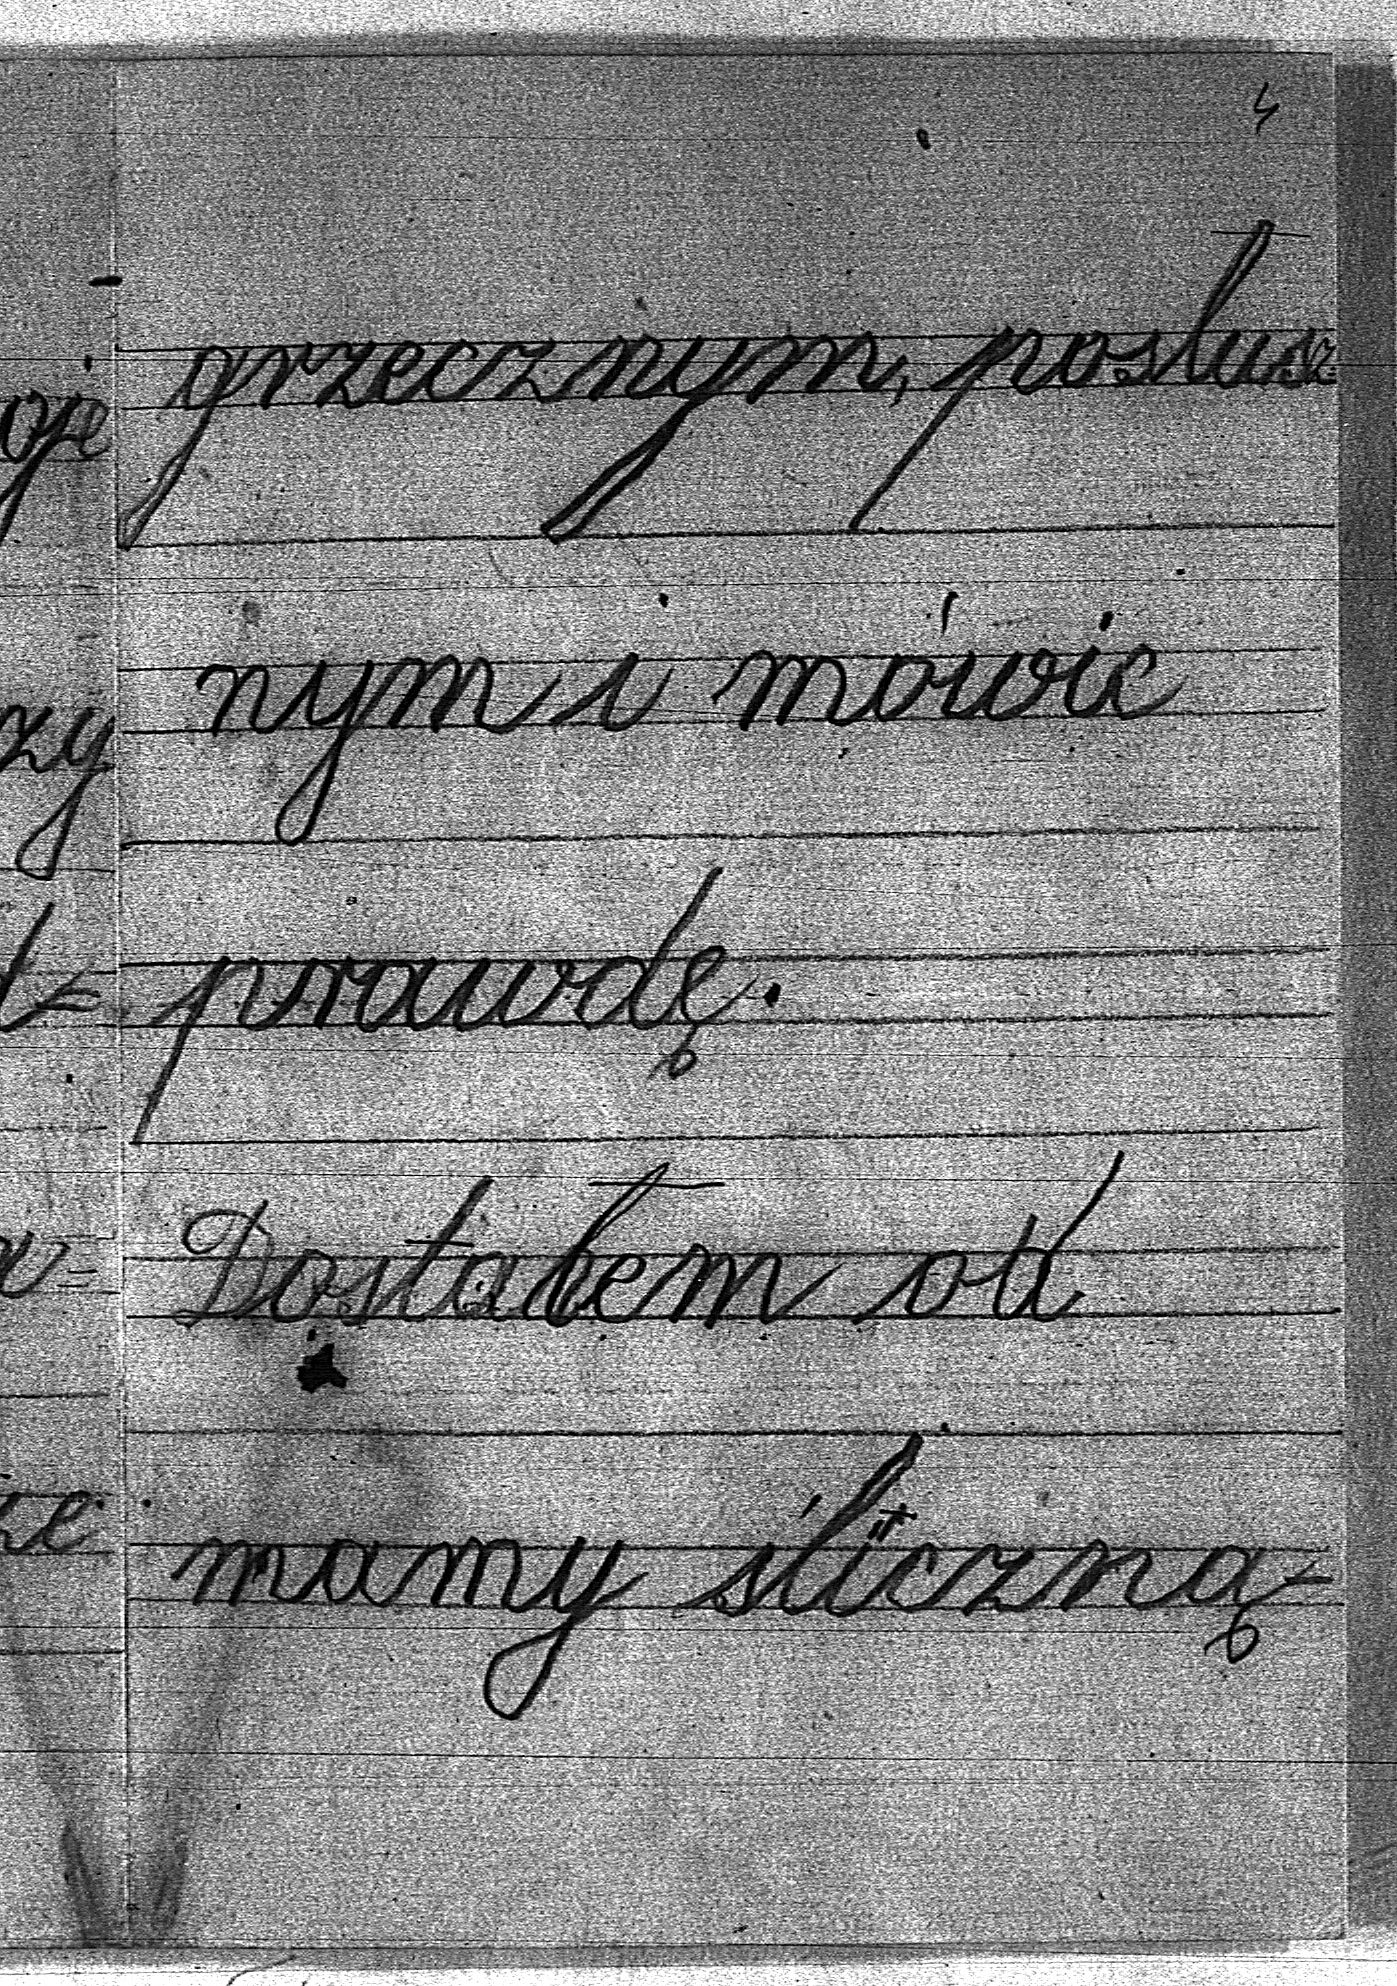 4
grzecznym, posłusz=
nym i mówic
prawdę.
Dostałem od
mamy śliczną=